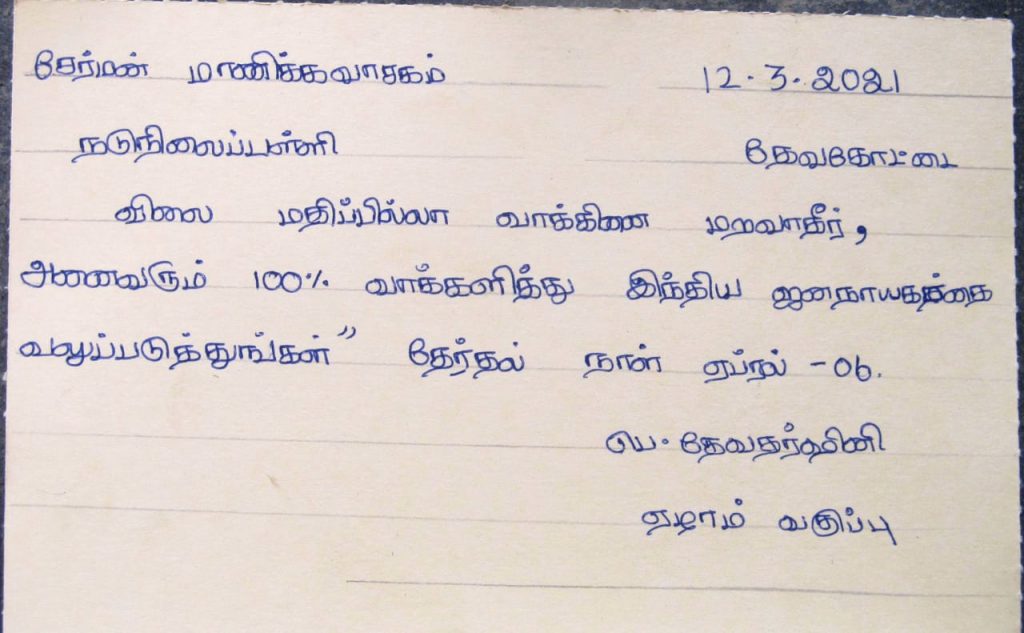 சேர்மன் மாணிக்கவாசகம் 12.3.2021
நடுநிலைப்பள்ளி தேவகோட்டை
விலை மதிப்பில்லா வாக்கினை மறவாதீர்,
அனைவரும் 100% வாக்களித்து இந்திய ஜனநாயகத்தை
வலுப்படுத்துங்கள்” தேர்தல் நாள் ஏப்ரல் -06.
பெ. தேவதர்ஷினி
ஏழாம் வகுப்பு